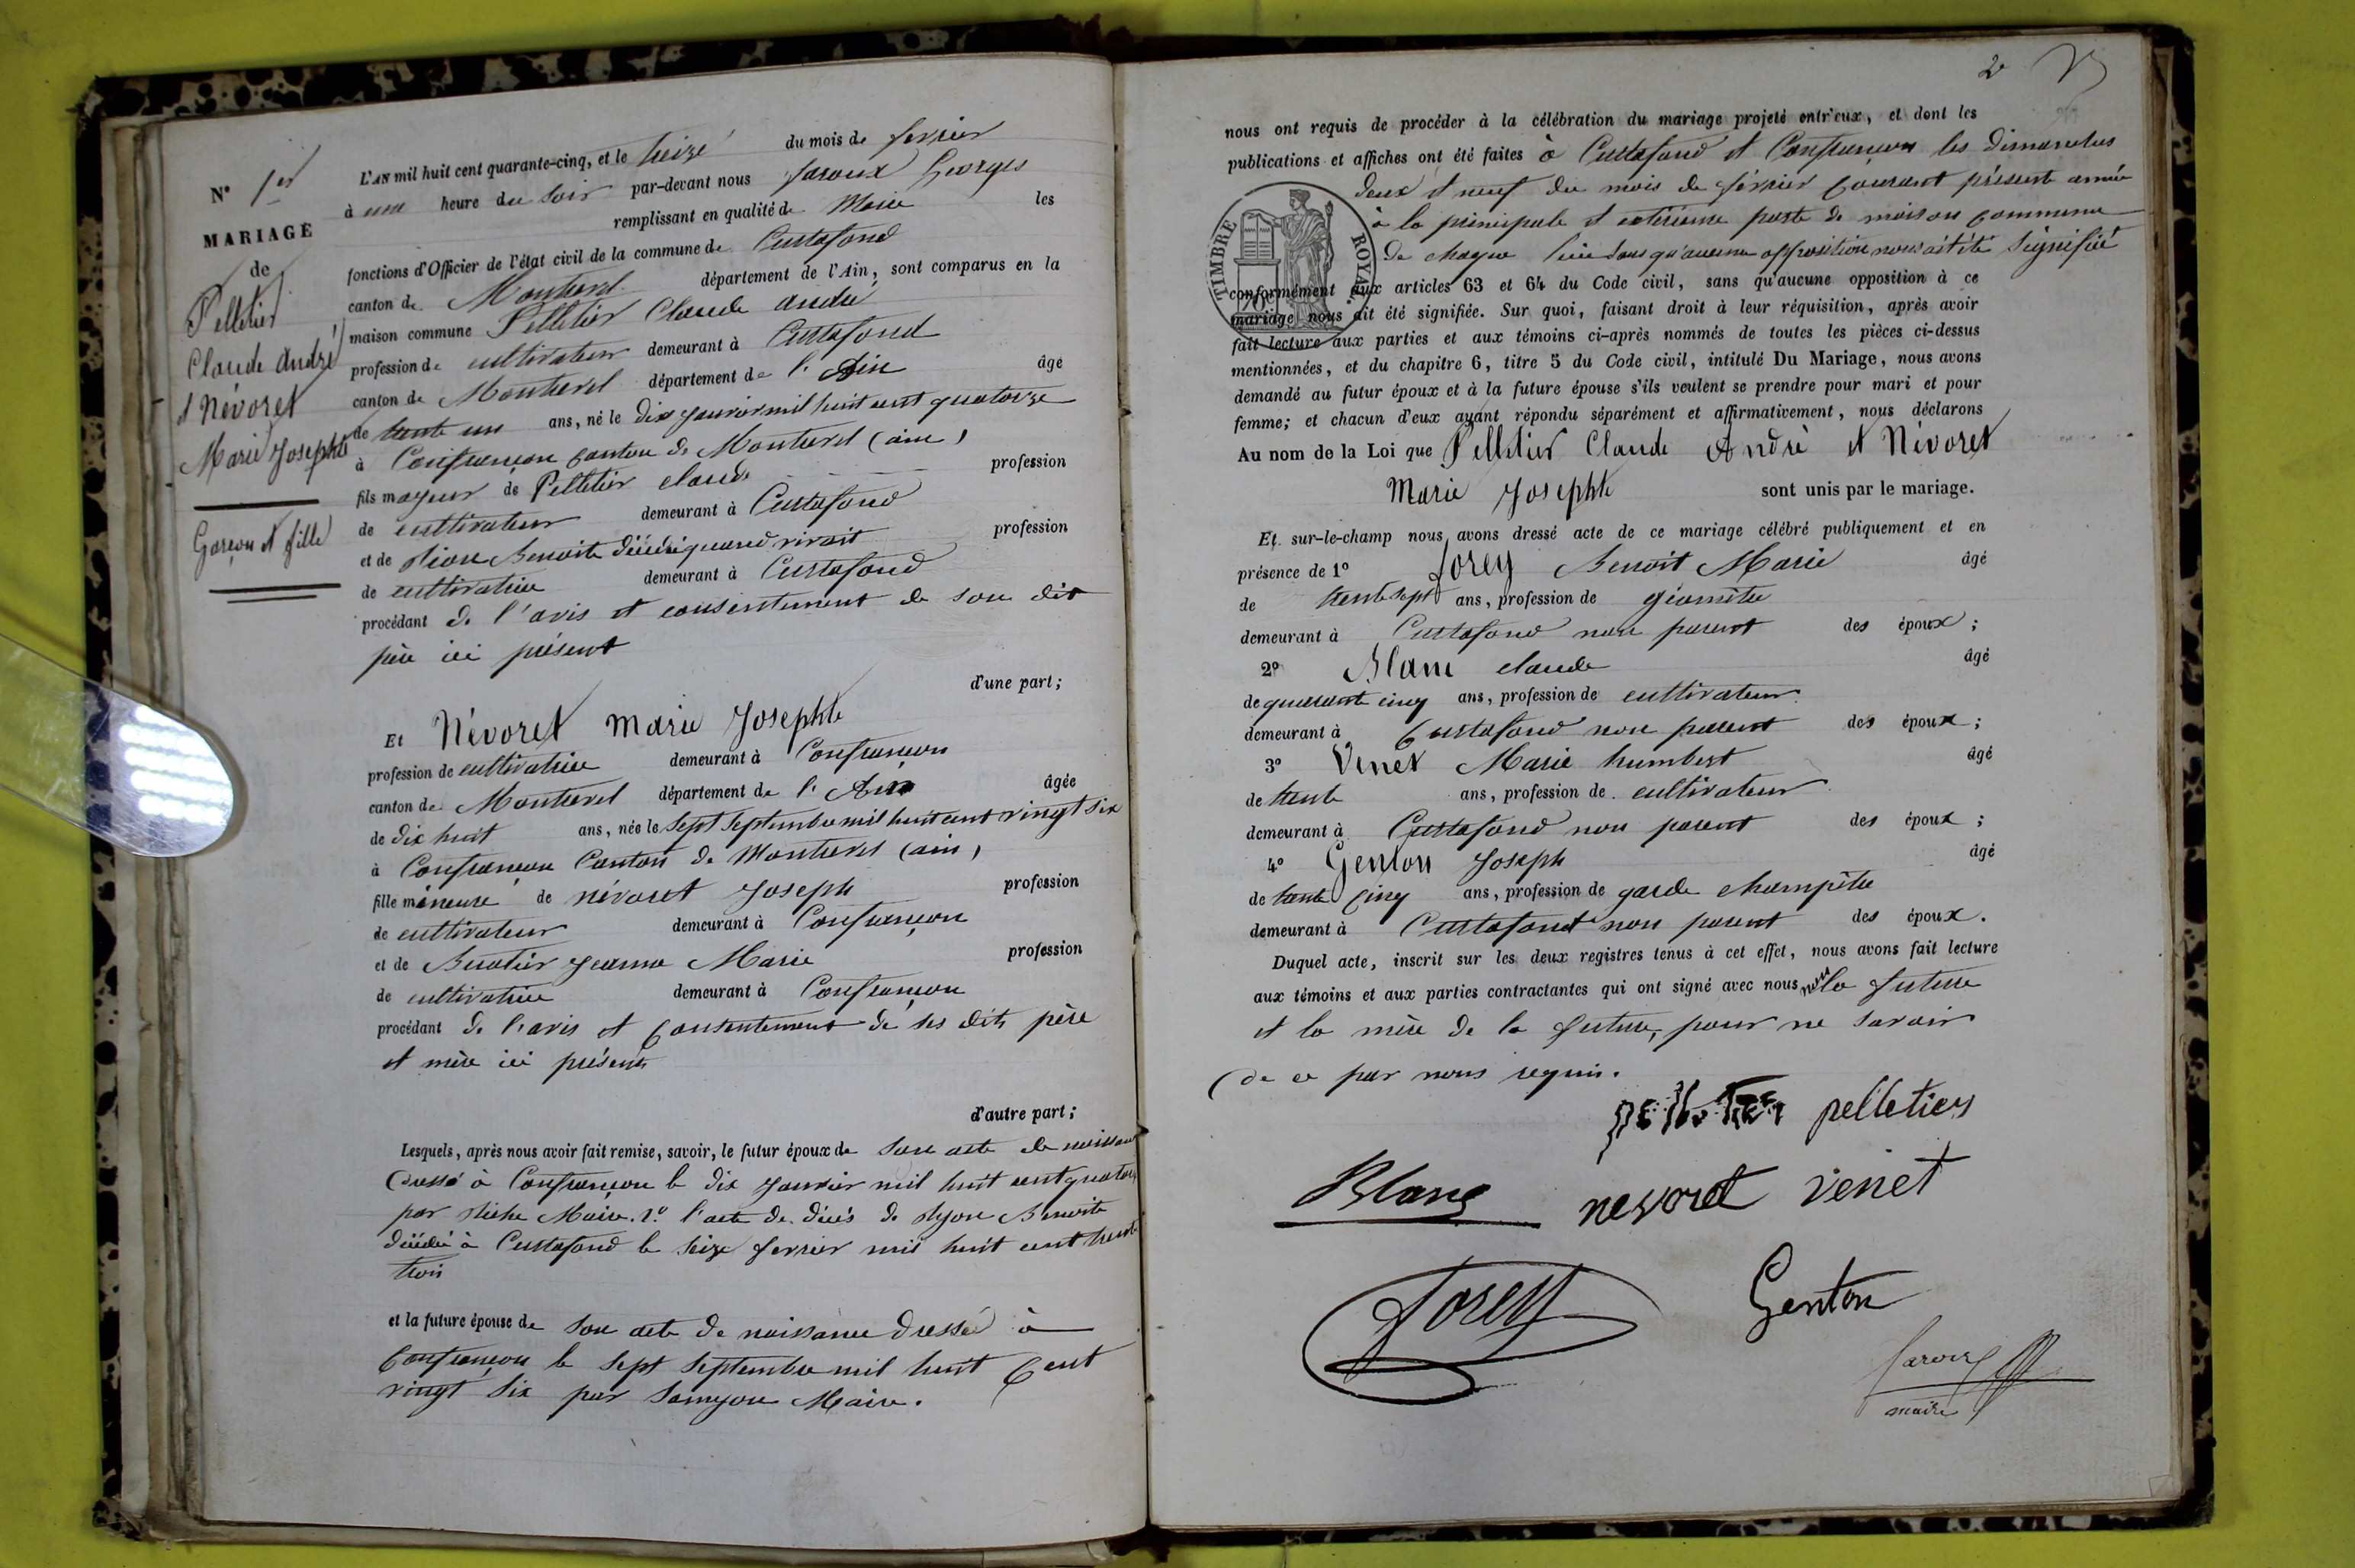 N° 1er
MARIAGE
de
Pelletier
Claude André
et Névoret
Marie Josephte
Garçon et fille
L'AN mil huit cent quarante-cinq, et le treize du mois de fevrier
à une heure du soir par-devant nous Jaroux Georges
remplissant en qualité de Maire les
fonctions d'Officier de l'état civil de la commune de Curtafond
canton de Montrevel département de l'Ain, sont comparus en la
maison commune Pelletier Claude André
profession de cultivateur demeurant à Curtafond
canton de Montrevel département de l'Ain âgé
de trente un ans, né le dix janvier mil huit cent quatorze
à Confrançon canton de Montrevel (ain)
fils majeur de Pelletier claude profession
de cultivateur demeurant à Curtafond
et de Benoite décédé quand vivait profession
de cultivatrice demeurant à Curtafond
procédant de l'avis et consentement de son dit
père ici présent
d'une part;
Et Névoret Marie Josephte
profession de cultivatrice demeurant à Confrançon
canton de Montrevel département de l'Ain âgée
de dix huit ans, née le sept septembre mil huit cent vingt six
à Confrançon Canton de Montrevel (ain)
fille mineure de névoret Joseph profession
de cultivateur demeurant à Confrançon
et de Jeanne Marie profession
de cultivatrice demeurant à Confrançon
procédant de l'avis et consentement de ses dits père
et mère ici présents
d'autre part;
Lesquels, après nous avoir fait remise, savoir, le futur époux de son acte de naissance
dressé à Confrançon le dix janvier mil huit cent quatorze
par Maire. 2° l'acte de décès de Benoite
décédé à Curtafond le seize fevrier mil huit cent trente
trois
et la future épouse de son acte de naissance dressé à
Confrançon le sept septembre mil huit Cent
vingt six par Maire.
2
nous ont requis de procéder à la célébration du mariage projeté entr'eux, et dont les
publications et affiches ont été faites à Curtafond et Confrançon les dimanches
deux et neuf du mois de février courant présente année
à la principale et extérieure porte de maison commune
de chaque lieu sans qu'aucune opposition nous ait été signifiée
TIMBRE ROYAL
conformément aux articles 63 et 64 du Code civil, sans qu'aucune opposition à ce
mariage nous ait été signifiée. Sur quoi, faisant droit à leur réquisition, après avoir
fait lecture aux parties et aux témoins ci-après nommés de toutes les pièces ci-dessus
mentionnées, et du chapitre 6, titre 5 du Code civil, intitulé Du Mariage, nous avons
demandé au futur époux et à la future épouse s'ils veulent se prendre pour mari et pour
femme; et chacun d'eux ayant répondu séparément et affirmativement, nous déclarons
Au nom de la Loi que Pelletier Claude André et Névoret
Marie Josephte sont unis par le mariage.
Et sur-le-champ nous avons dressé acte de ce mariage célébré publiquement et en
présence de 1° Jorey Benoit Marie âgé
de trente sept ans, profession de géomètre
demeurant à Curtafond non parent des époux;
2° Blanc claude âgé
de quarante cinq ans, profession de cultivateur
demeurant à Curtafond non parent des époux;
3° Venet Marie humbert âgé
de trente ans, profession de cultivateur
demeurant à Curtafond non parent des époux;
4° Genton Joseph âgé
de trente cinq ans, profession de garde champêtre
demeurant à Curtafond non parent des époux.
Duquel acte, inscrit sur les deux registres tenus à cet effet, nous avons fait lecture
aux témoins et aux parties contractantes qui ont signé avec nous, non la future
et la mère de la future, pour ne savoir
de ce par nous requis.
pelletier pelletier
Blanc nevoret venet
Jorey Genton
Jaroux
maire